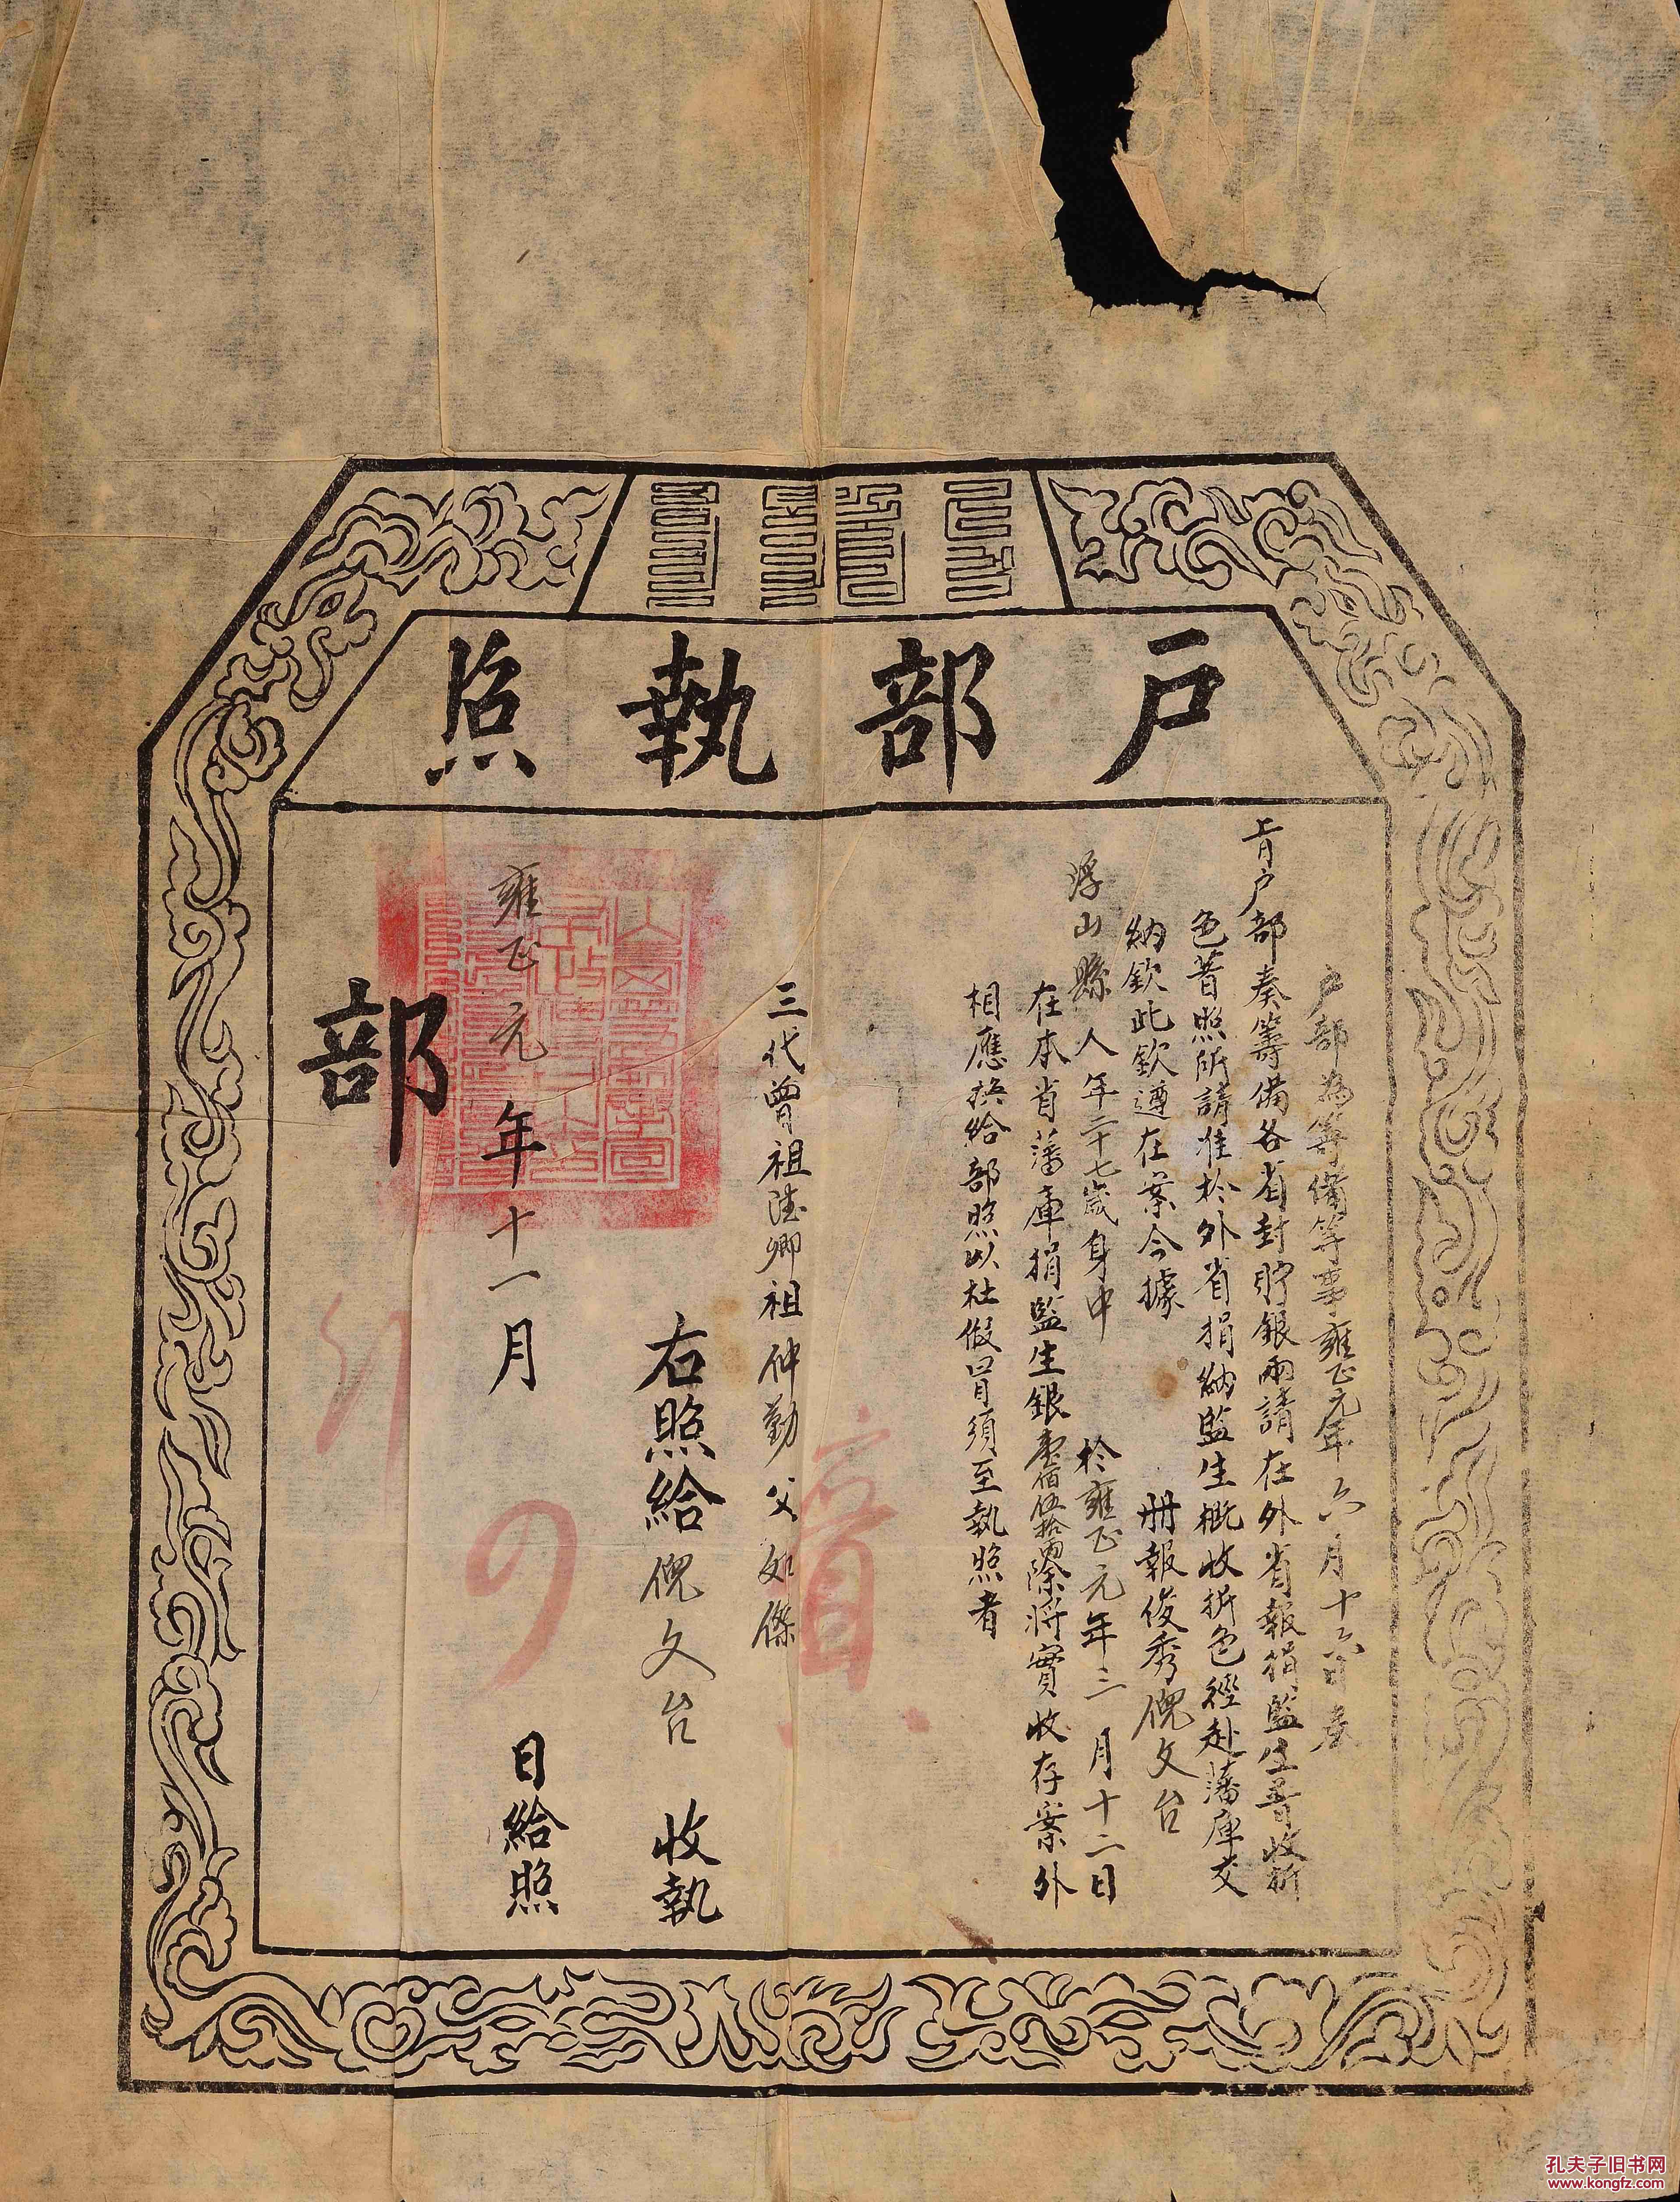 戶部執照
戶部為籌備等事雍正元年六月十六日奉
旨戶部奏籌備各省封貯銀兩請在外省報捐監生普收折
色著照所請准於外省捐納監生概收折色徑赴藩庫交
納欽此欽遵在案今據 冊報俊秀倪文台
浮山縣人年二十七歲身中 於雍正元年三月十二日
在本省藩庫捐監生銀壹佰伍拾兩除將實收存案外
相應換給部照以杜假冒須至執照者
三代曾祖 卿祖仲勤父如傑
右照給倪文台 收執
雍正元年十一月 日給照
部
孔夫子旧书网
www.kongfz.com